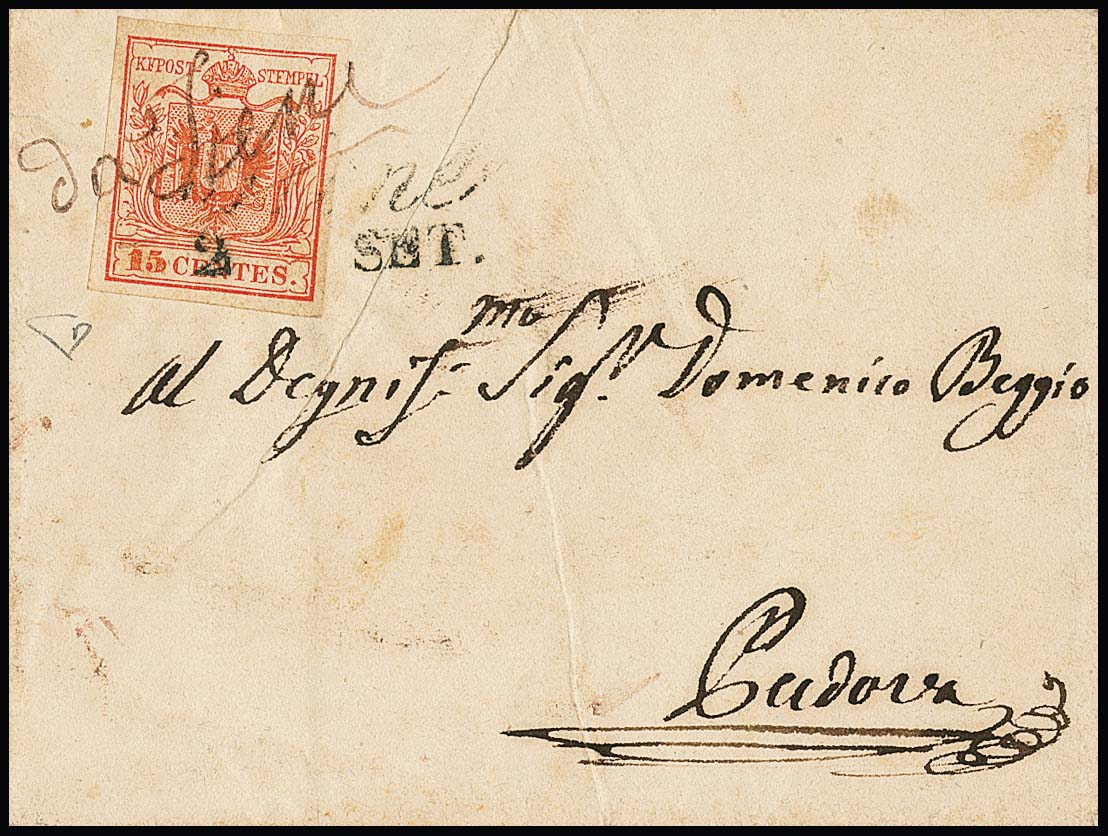 KKPOST- STEMPEL
da Fiene
2 SET.
15 CENTES.
al Degnis.mo Sigr. Domenico Beggio
Padova